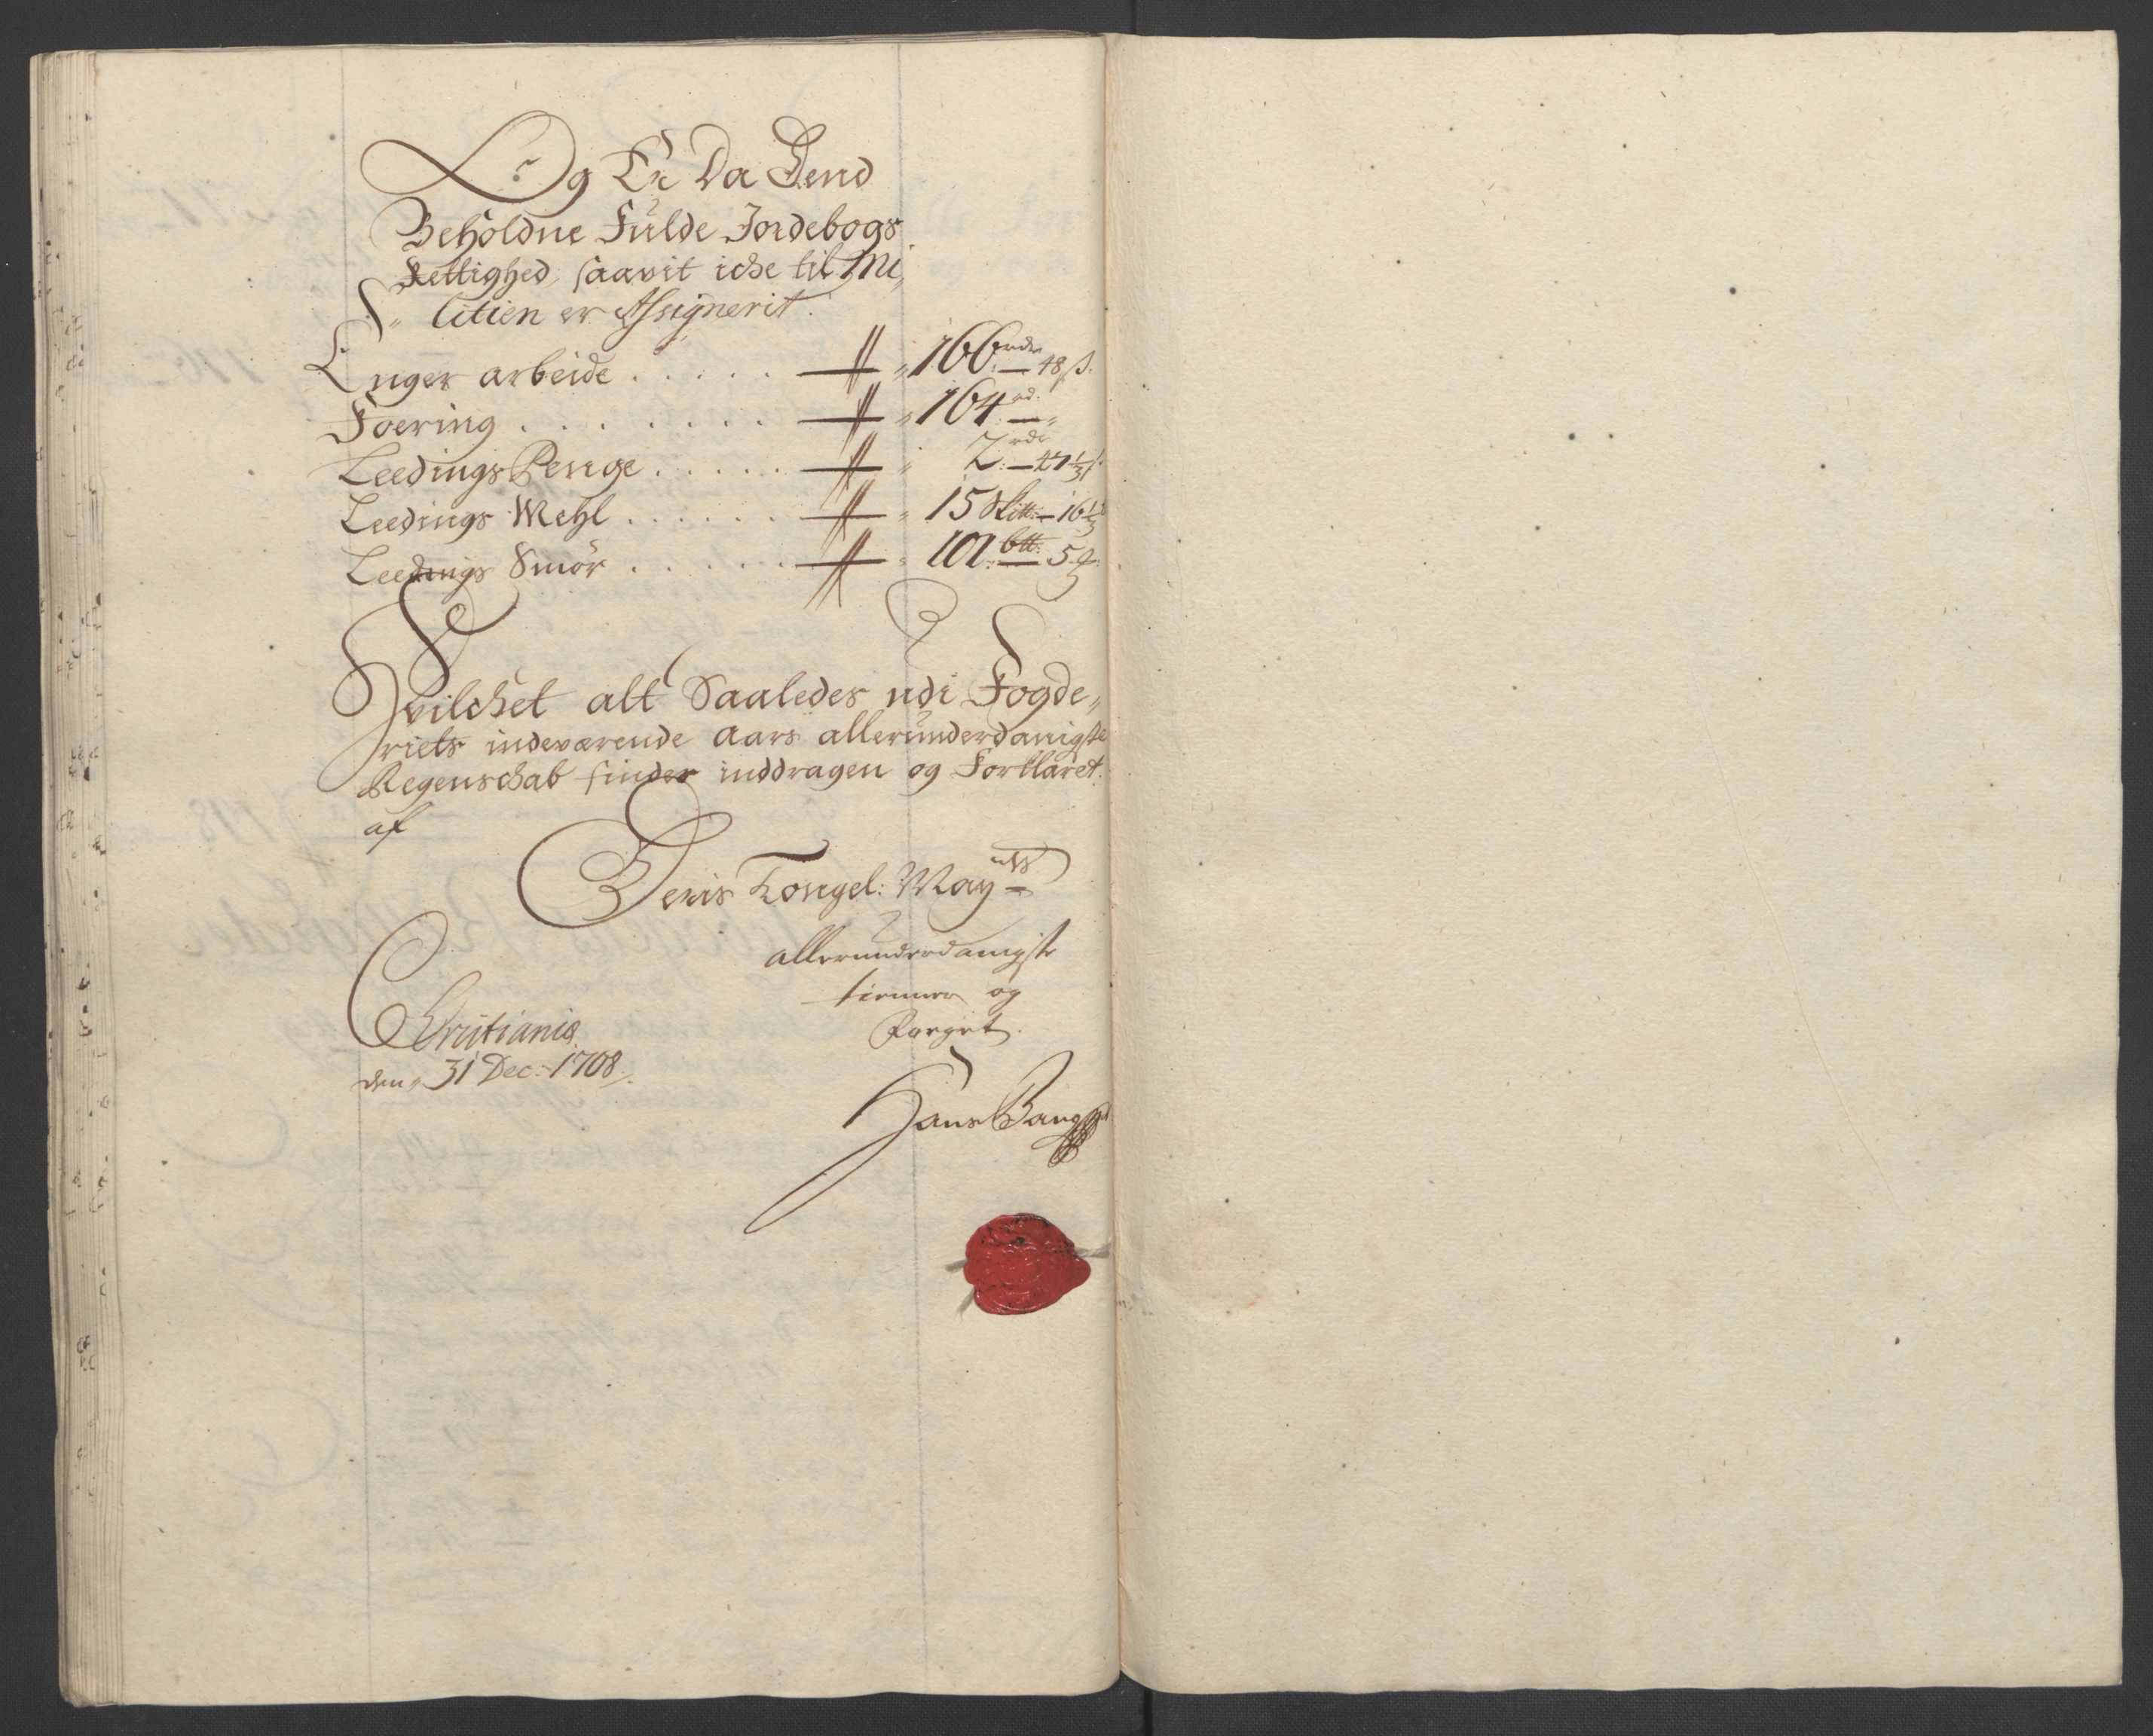 Og Er Da Dend
Beholdne Fulde Jordebogs
Rettighed, saavit iche til Mi„
litien er Assignerit.
Enger arbeide . . . . . „ 166 rdr — 48 ß.
Foering . . . . . . . „ 164 rd. — „
Leedings Penge . . . . . „ 2 rdr — 47 1/3 ß.
Leedings Mehl . . . . . . „ 15 — 16 1/3
Leedings Smör . . . . . „ 101
Hvilchet alt Saaledes udi Fogde„
riets indeværende Aars allerunderdanigste
Regenschab findes inddragen og Forklaret.
af
Deris Kongel: Mayts
allerunderdanigste
tienner og
Foeget.
Christiania
den 31 Dec: 1708.
Hans Bang